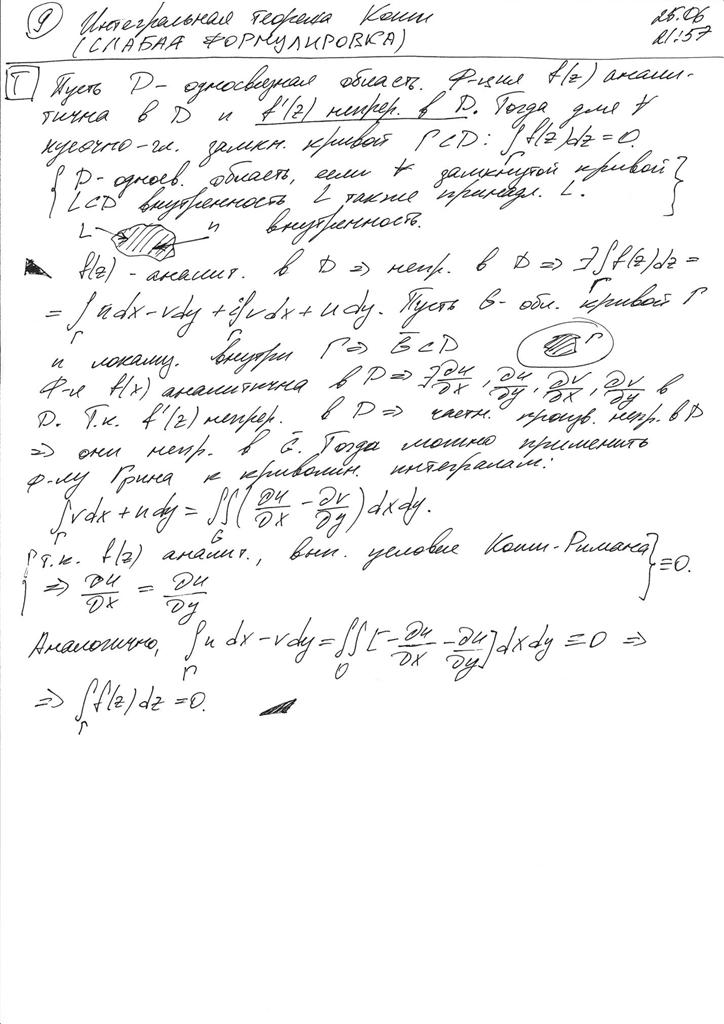 ⑨ Интегральная теорема Коши 25.06
(СЛАБАЯ ФОРМУЛИРОВКА) 21:57
Т Пусть D - односвязная область. Ф-ция f(z) анали-
тична в D и f'(z) непрер. в D. Тогда для ∀
кусочно-гл. замкн. кривой Γ⊂D: ∫_Γ f(z)dz=0.
{D-односв. область, если ∀ замкнутой кривой
L⊂D внутренность L также принадл. L.}
L внутренность.
f(z) - аналит. в D ⇒ непр. в D ⇒ ∃∫_Γ f(z)dz=
= ∫_Γ udx-vdy + i∫_Γ vdx+udy. Пусть G- обл. кривой Γ
внутри Γ ⇒ G̅⊂D Γ
Ф-я f(x) аналитична в D ⇒ ∃ ∂u/∂x, ∂u/∂y, ∂v/∂x, ∂v/∂y в
D. Т.к. f'(z) непрер. в D ⇒ частн. произв. непр. в D
⇒ они непр. в G̅. Тогда можно применить
ф-лу Грина к криволин. интегралам:
∫_Γ vdx+udy = ∬_G (∂u/∂x - ∂v/∂y) dxdy.
{т.к. f(z) аналит., вып. условие Коши-Римана
⇒ ∂u/∂x = ∂u/∂y} ≡0.
Аналогично, ∫_Γ u dx-vdy = ∬_D [-∂u/∂x - ∂u/∂y] dxdy ≡ 0 ⇒
⇒ ∫_Γ f(z)dz=0.